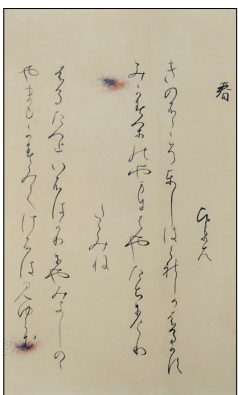 春
きのふこそとしはくれしかはるかす
みかすかのやまにはやたちにけり
たゝみね
はるたつといふはかりにやみよしのゝ
やまもかすみてけさは見ゆらむ